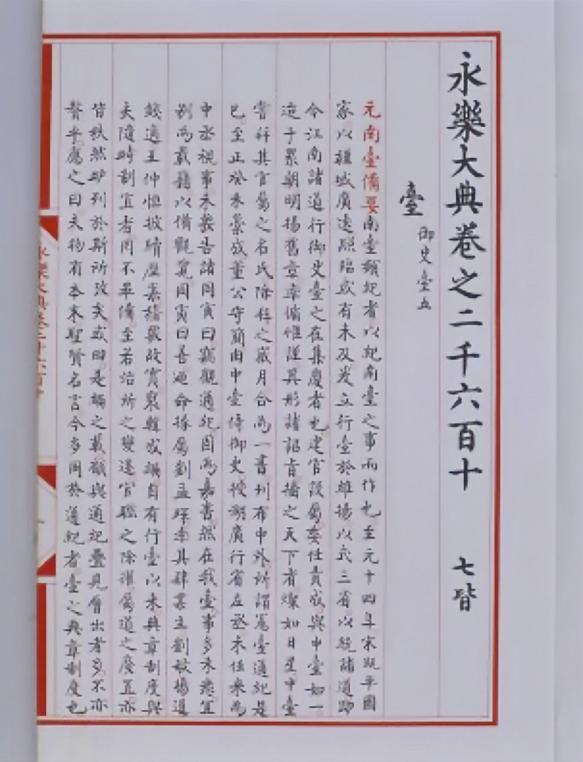 永樂大典卷之二千六百十　七皆
臺 御史臺五
元南臺備要南臺類紀者以紀南臺之事而作也至元十四年宋既平國
家以疆域廣遠照臨或有未及爰立行臺於維揚以式三省以統諸道
今江南諸道行御史臺之在集慶者也建官設屬委任責成與中臺如一
逮于累朝明揚舊章率循惟謹其形諸詔旨播之天下者燦如日星中臺
嘗拜其官屬之名氏除移之歲月合為一書刊布中外所謂憲臺通紀是
已至正癸未董公守簡由中臺侍御史授湖廣行省左丞未任來為
中丞視事未幾告諸同寅曰竊觀通紀固為嘉書然在我臺事多未悉宜
別為載籍以備觀覽同寅曰善迺命掾屬劉孟琛率其肆業主劉敏楊道
錢適王仲恒披緝歷紊稽故實裒輯成編自有行臺以來典章制度與
夫隨時制宜者罔不畢備至若治所之變遷官聯之除擢屬道之廢置亦
皆秩然昈列於斯所攷矣或曰是編之載類與通紀疊見層出者多不亦
贅乎屬之曰夫物有本末聖賢名言今多同於通紀者臺之典章制度也